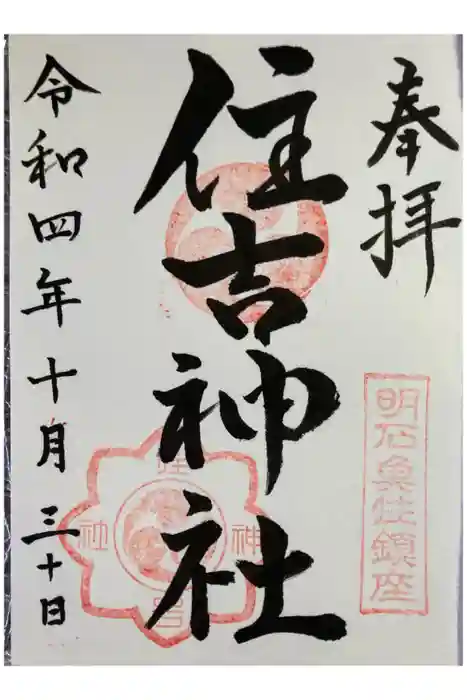 奉拝
明石魚住鎮座
住吉神社
住吉神社
令和四年十月三十日